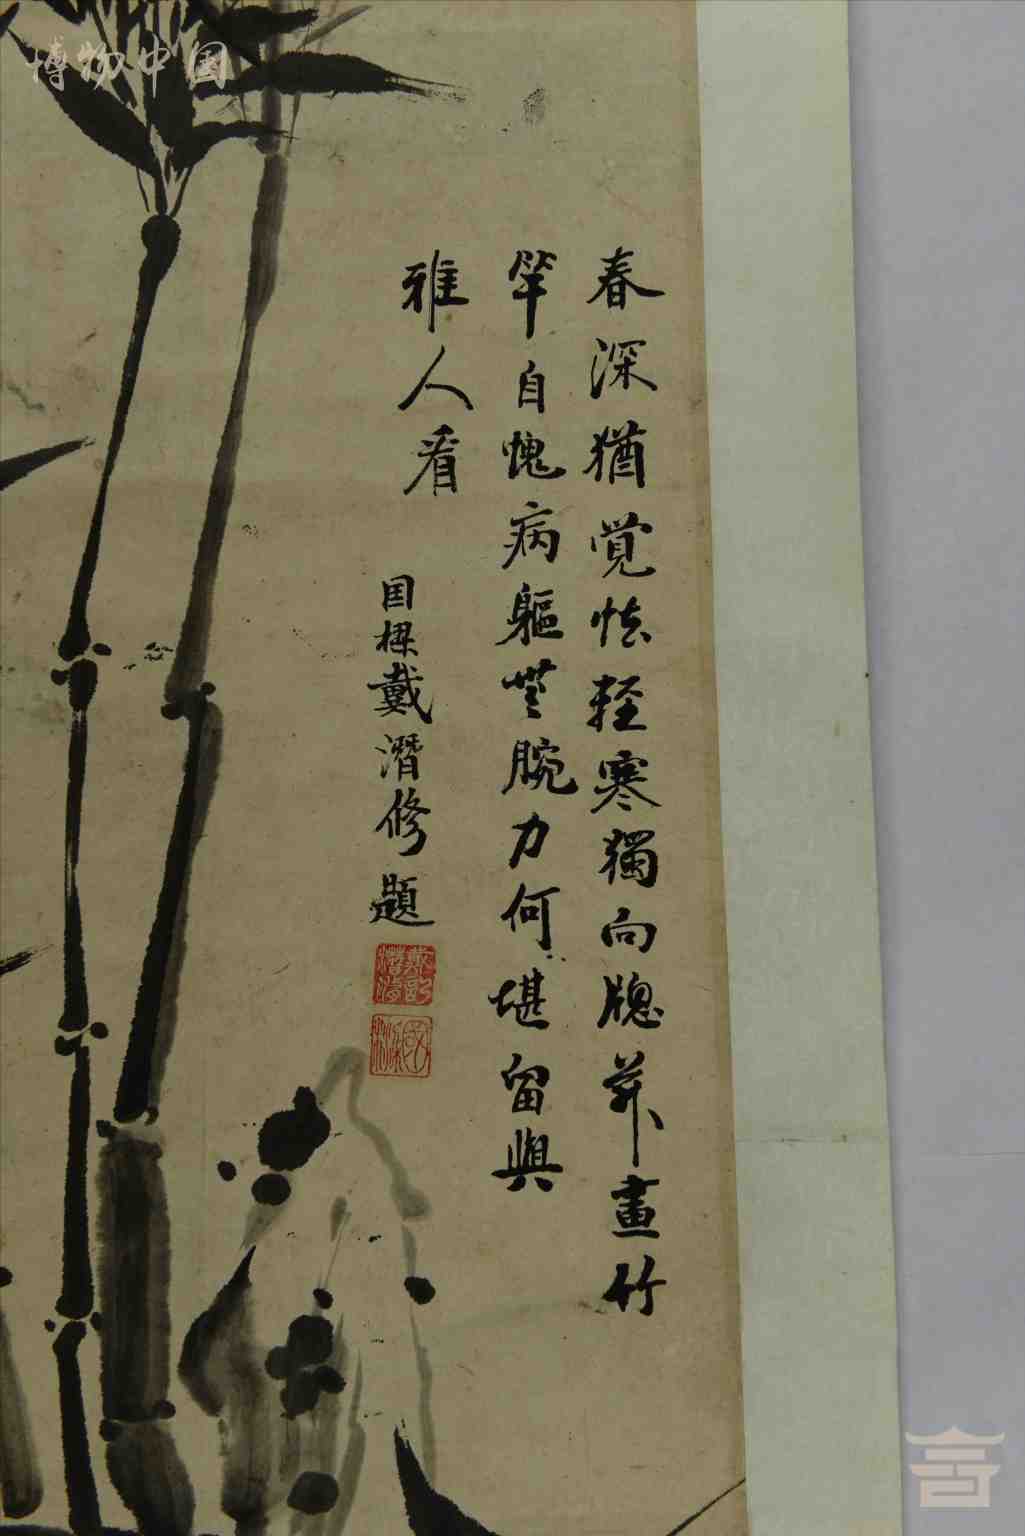 春深猶覺怯輕寒獨向牕前畫竹
竿自愧病軀無腕力何堪留與
雅人看
国樑戴潛修題
博物中国